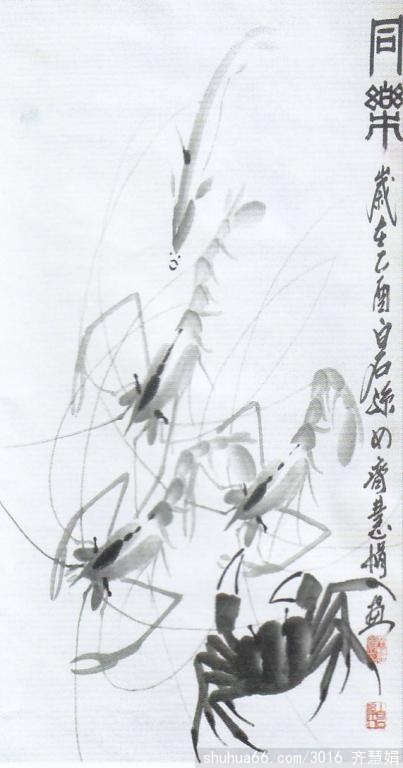 同樂
歲在乙酉白石孫女齊慧娟畫
shuhua66.com/3016 齐慧娟